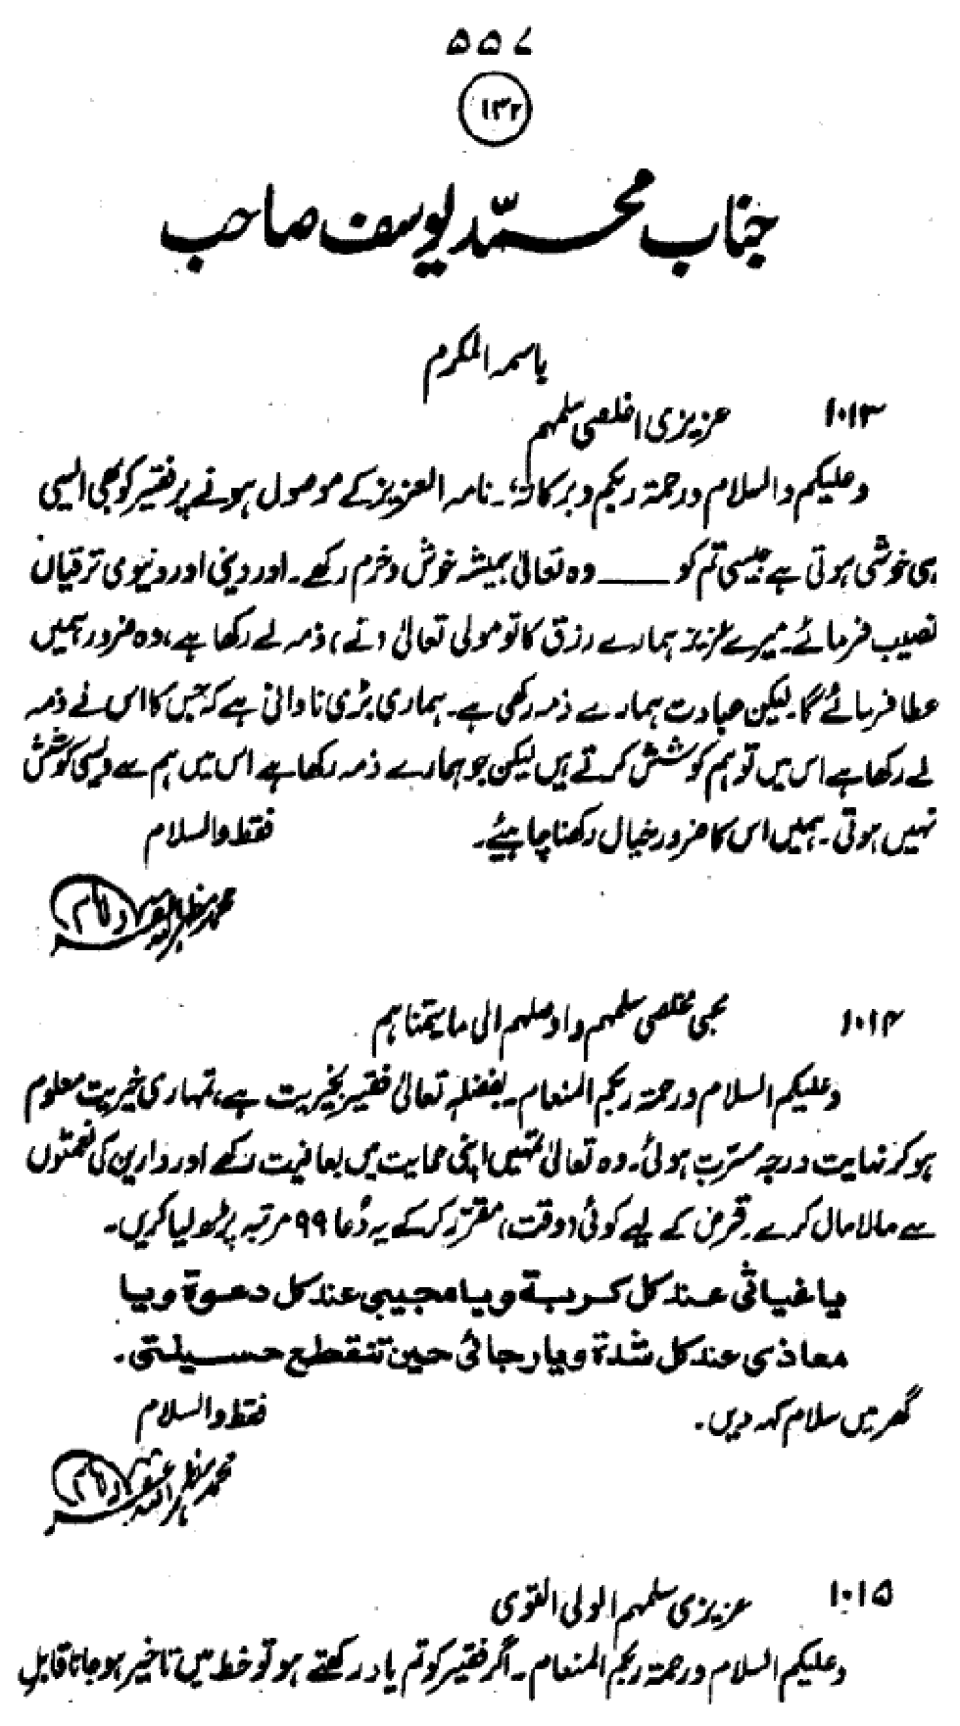 ۵۵۷
۱۳۲
جناب محمّد یوسف صاحب
باسمہ المکرم
۱۰۱۳ عزیزی اخلصی سلمہم
وعلیکم والسلام ورحمۃ ربکم وبرکاتہ، ۔ نامہ العزیز کے موصول ہونے پر فقیر کو بھی ایسی
ہی خوشی ہوتی ہے جیسی تم کو ـــــــ وہ تعالیٰ ہمیشہ خوش وخرم رکھے۔ اور دینی اور دنیوی ترقیاں
نصیب فرمائے۔ میرے عزیز ہمارے رزق کا تو مولی تعالیٰ (نے) ذمہ لے رکھا ہے، وہ ضرور ہمیں
عطا فرمائے گا۔ لیکن عبادت ہمارے ذمہ رکھی ہے۔ ہماری بڑی نادانی ہے کہ جس کا اس نے ذمہ
لے رکھا ہے اس میں تو ہم کوشش کرتے ہیں لیکن جو ہمارے ذمہ رکھا ہے اس میں ہم سے ویسی کوشش
نہیں ہوتی۔ ہمیں اس کا ضرور خیال رکھنا چاہیئے۔ فقط والسلام
محمد مظہر اللہ
۱۰۱۴ محبی مخلصی سلمہم واوصلہم الی مایتمناہم
وعلیکم السلام ورحمۃ ربکم المنعام۔ بفضلہٖ تعالیٰ فقیر بخیریت ہے، تمہاری خیریت معلوم
ہوکر نہایت درجہ مسرت ہوئی۔ وہ تعالیٰ تمہیں اپنی حمایت میں بعافیت رکھے اور دارین کی نعمتوں
سے مالا مال کرے۔ قرض کے لیے کوئی (وقت) مقرّر کرکے یہ دُعا ۹۹ مرتبہ پڑھ لیا کریں۔
یا غیاثی عند کل کربۃ ویا مجیبی عند کل دعوۃ ویا
معاذی عند کل شدۃ ویا رجائی حین تنقطع حسیلتی۔
گھر میں سلام کہہ دیں۔ فقط والسلام
محمد مظہر اللہ
۱۰۱۵ عزیزی سلمہم الولی القوی
وعلیکم السلام ورحمۃ ربکم المنعام۔ اگر فقیر کو تم یاد رکھتے ہو تو خط میں تاخیر ہو جانا قابلِ